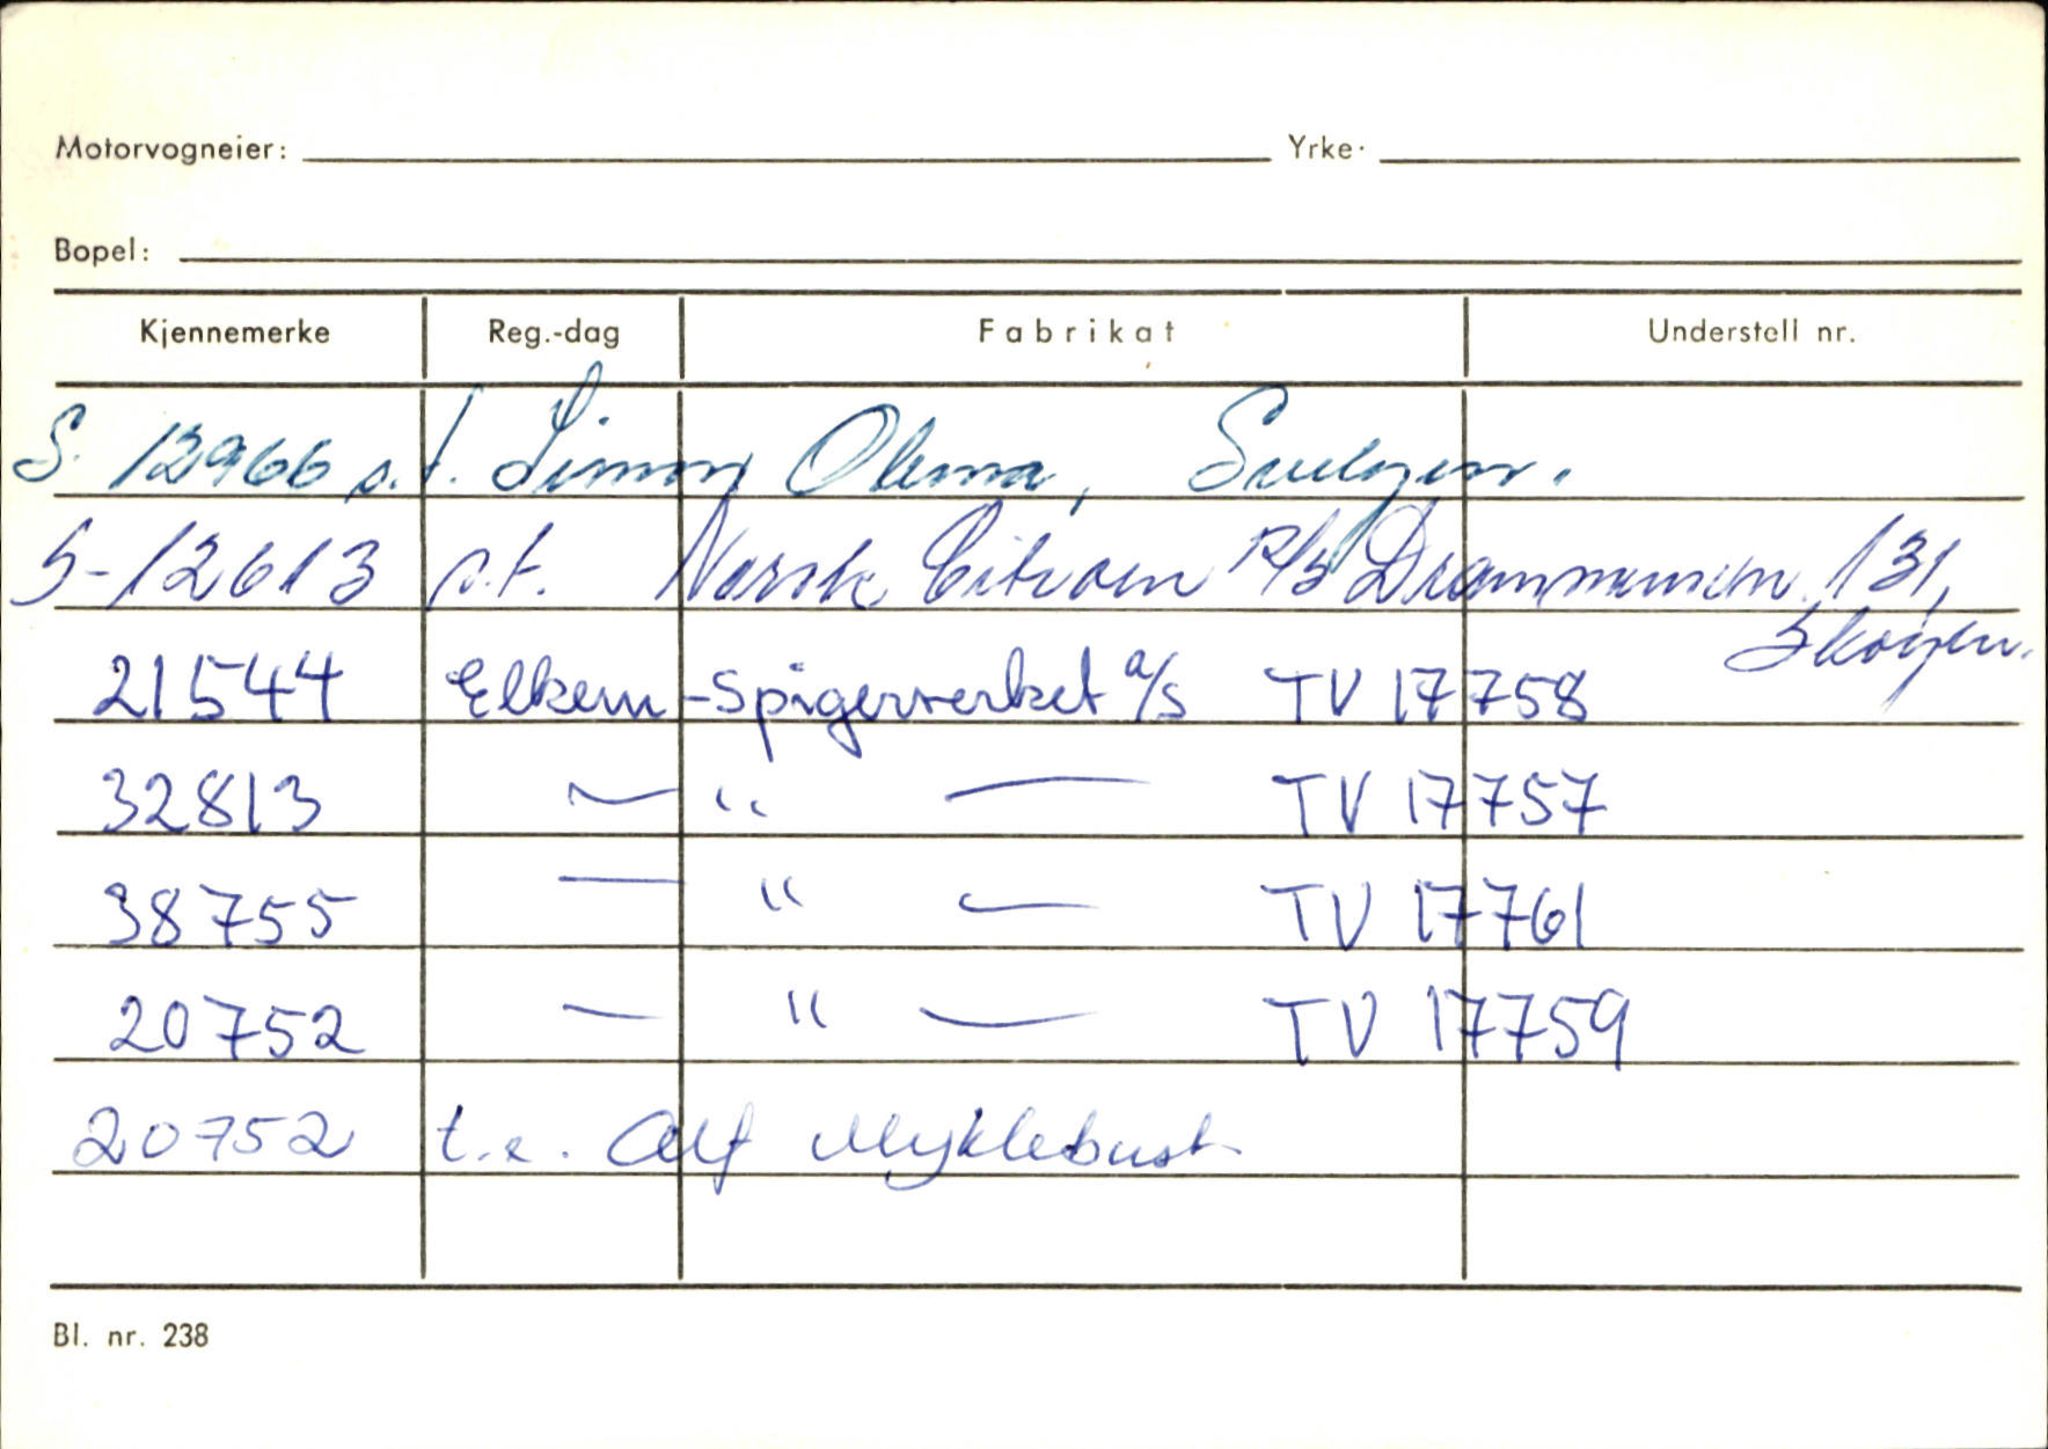 Motorvogneier: Yrke·
Bopel:
Kjennemerke Reg.-dag Fabrikat Understell nr.
S. 12966 s.t.
S-12613 s.t. Norsk Citroen A/S Drammensvn. 131,
Skøyen.
21544 Elkem-Spigerverket a/s TV 17758
32813 — " — TV 17757
38755 — " — TV 17761
20752 — " — TV 17759
20752 t.e. Alf Myklebust
Bl. nr. 238